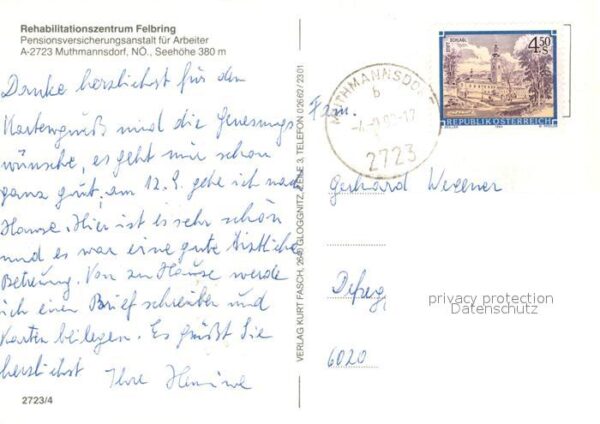 Rehabilitationszentrum Felbring
Pensionsversicherungsanstalt für Arbeiter
A-2723 Muthmannsdorf, NÖ., Seehöhe 380 m
Danke herzlichst für den
Kartengruß und die Genesungs
wünsche, es geht mir schon
ganz gut, am 12. 9. gehe ich nach
Hause. Hier ist es sehr schön
und es war eine gute ärztliche
Betreung. Von zu Hause werde
ich einen Brief schreiben und
Karten beilegen. Es grüßt Sie
herzlichst Ihre
2723/4
VERLAG KURT FASCH, 2640 GLOGGNITZ, ZEILE 3, TELEFON 02662/2301
MUTHMANNSDORF
b
2723
4.50 S
REPUBLIK ÖSTERREICH
Gerhard Wegener
privacy protection
Datenschutz
6020